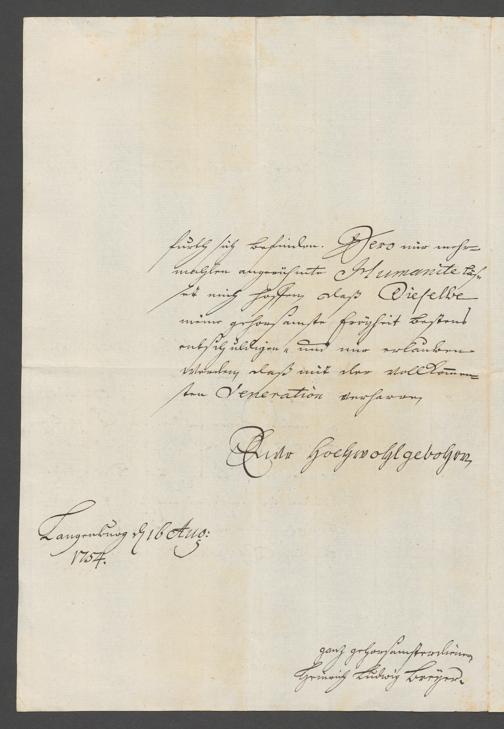 furth sich befinden. Dero mir mehr=
mahlen angerühmte Humanité läs=
set mich hoffen, daß Dieselbe
meine gehorsamste Freyheit bestens
entschuldigen, und mir erlauben
werden, daß mit der vollkommen=
sten Veneration verharren,
Euer Hochwohlgebohrn,
Langenburg d 16 Aug:
1754.
ganz gehorsamster diener
Heinrich Ludwig Breyer.